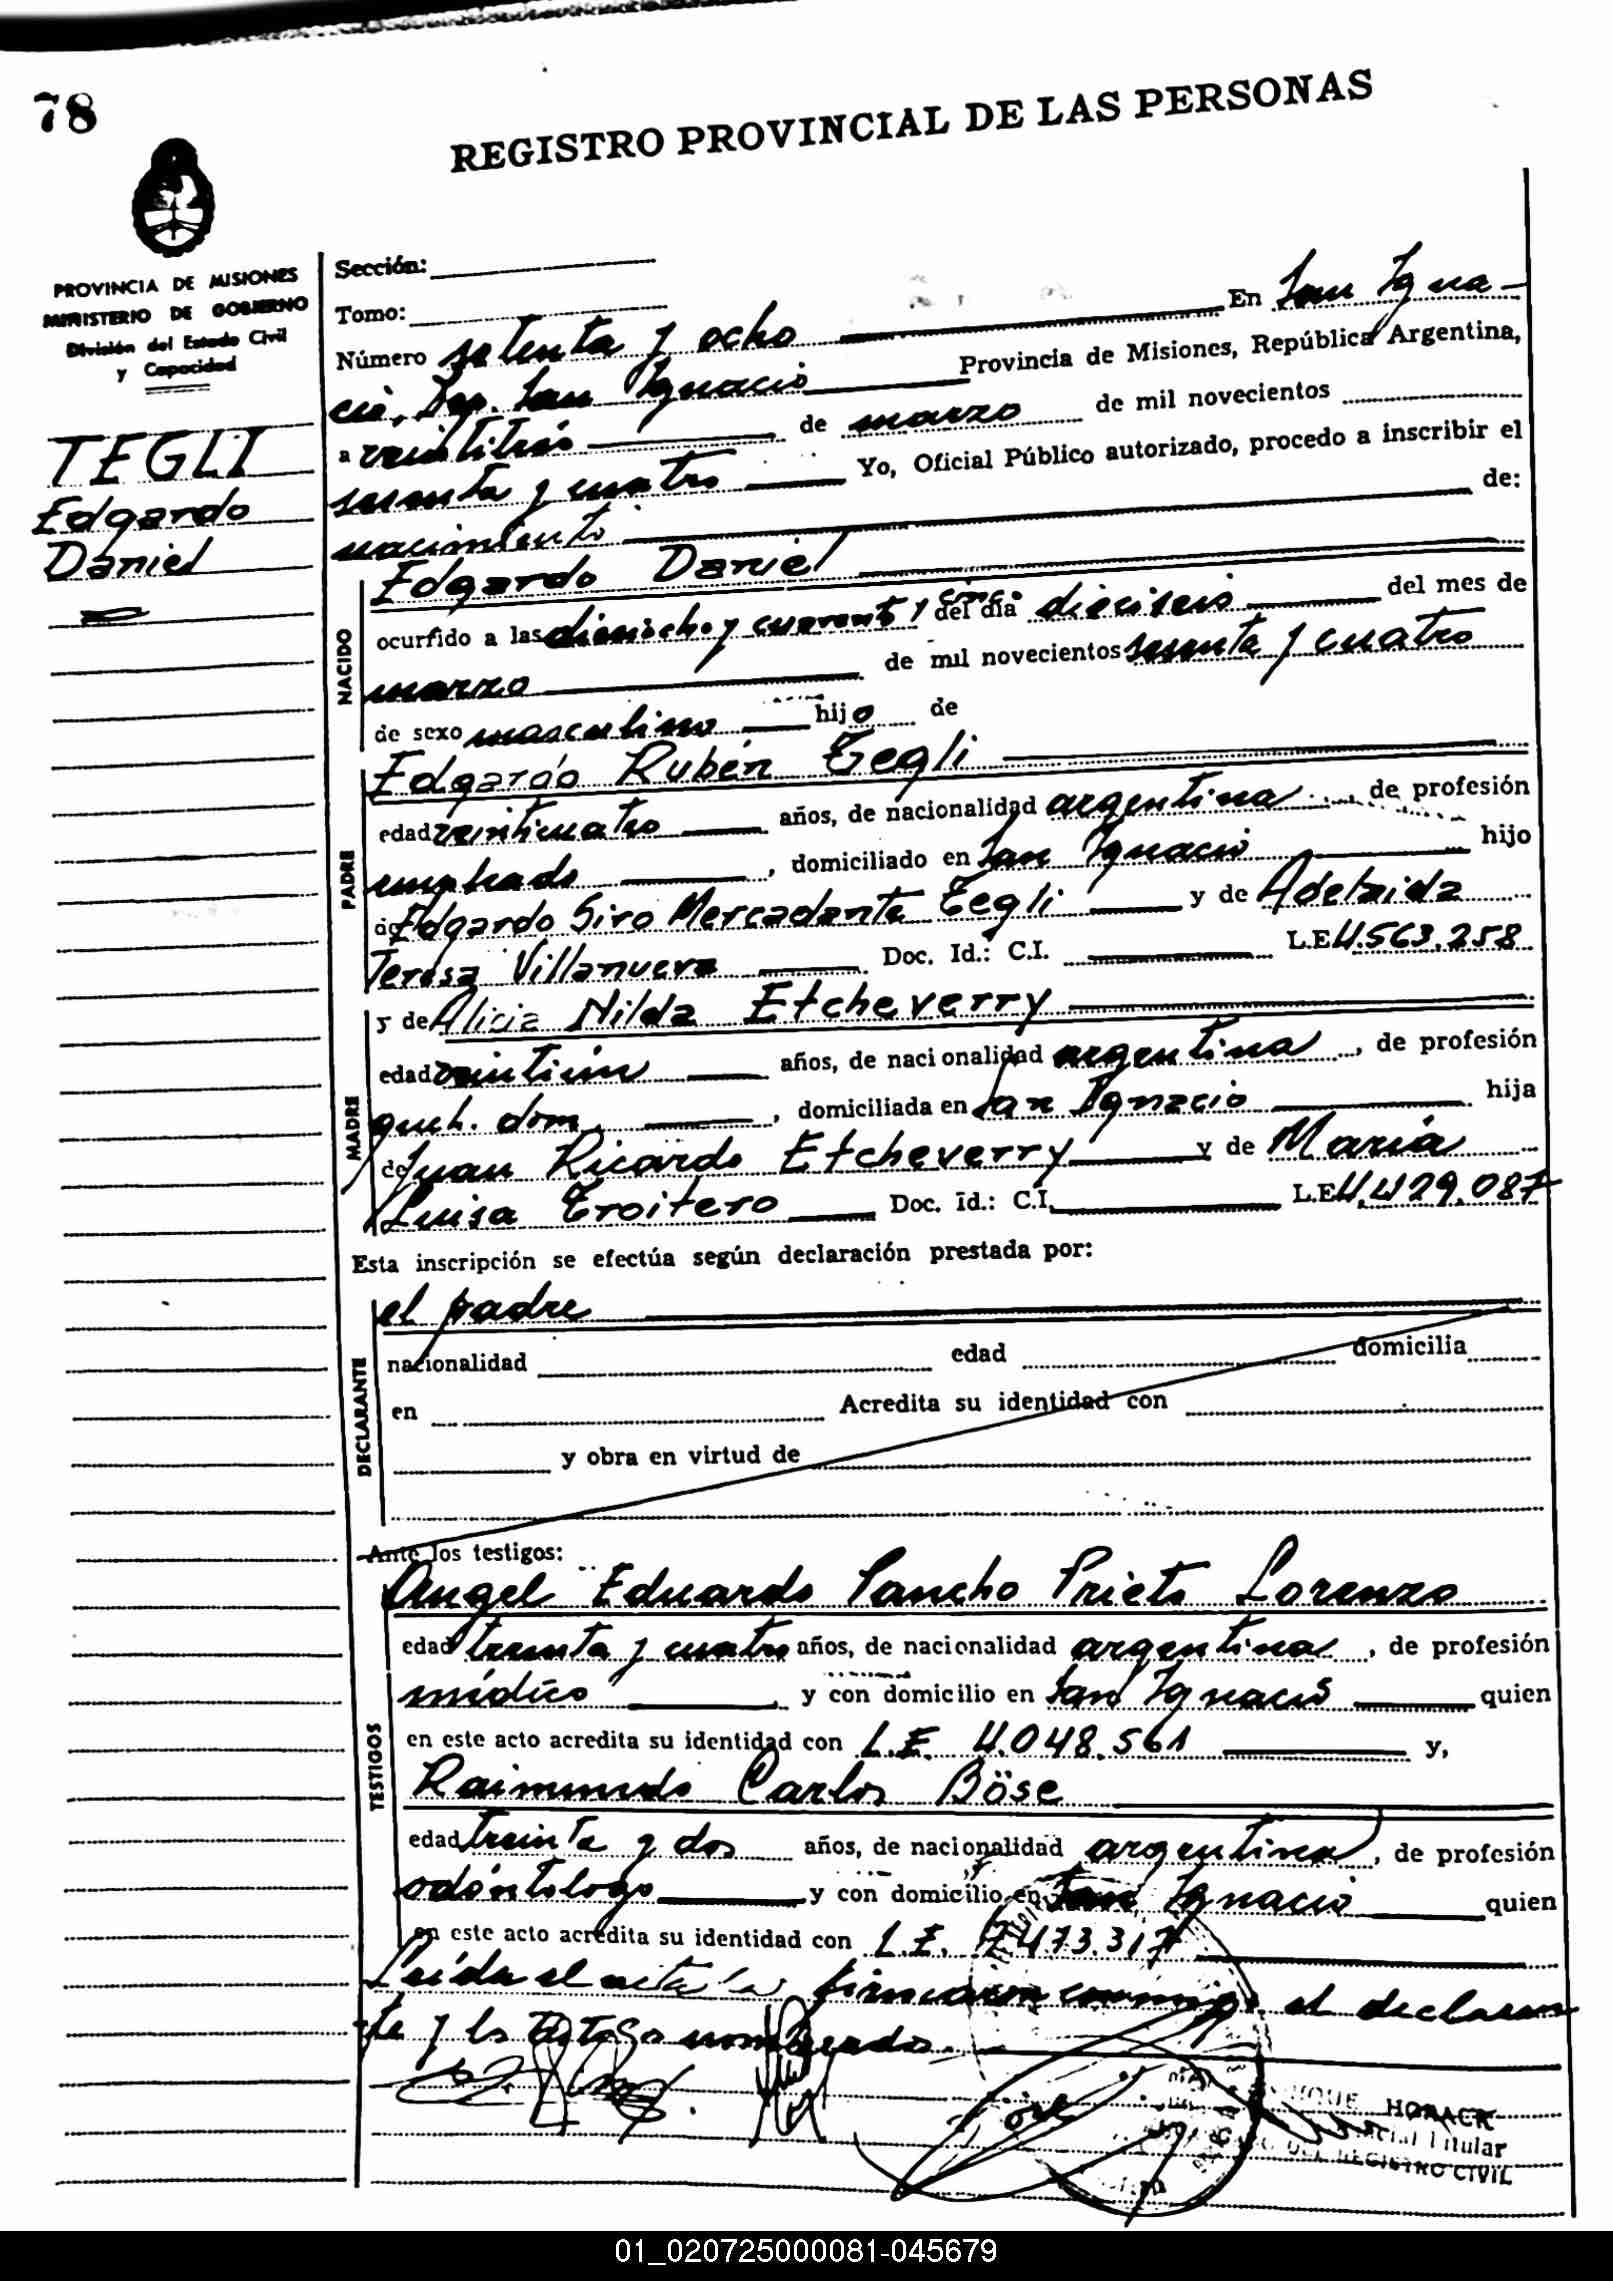 78
REGISTRO PROVINCIAL DE LAS PERSONAS
PROVINCIA DE MISIONES
MINISTERIO DE GOBIERNO
División del Estado Civil
y Capacidad
TEGLI
Edgardo
Daniel
Sección:
Tomo:
Número setenta y ocho En San Igna-
cio, Dep. San Ignacio Provincia de Misiones, República Argentina,
a veintitrés de marzo de mil novecientos
sesenta y cuatro Yo, Oficial Público autorizado, procedo a inscribir el
nacimiento de:
NACIDO
Edgardo Daniel
ocurrido a las dieciocho y cuarenta y cinco del día dieciseis del mes de
marzo de mil novecientos sesenta y cuatro
de sexo masculino hijo de
PADRE
Edgardo Rubén Tegli
edad veinticuatro años, de nacionalidad argentina, de profesión
empleado, domiciliado en San Ignacio hijo
de Edgardo Siro Mercadante Tegli y de Adelaida
Teresa Villanueva Doc. Id.: C.I. L.E 4.563.258
MADRE
y de Alicia Nilda Etcheverry
edad veintiún años, de nacionalidad argentina, de profesión
queh. dom., domiciliada en San Ignacio hija
de Juan Ricardo Etcheverry y de María
Luisa Troitero Doc. Id.: C.I. L.E 4.429.087
Esta inscripción se efectúa según declaración prestada por:
DECLARANTE
el padre
nacionalidad edad domicilia
en Acredita su identidad con
y obra en virtud de
Ante los testigos:
TESTIGOS
Angel Eduardo Sancho Prieto Lorenzo
edad treinta y cuatro años, de nacionalidad argentina, de profesión
médico y con domicilio en San Ignacio quien
en este acto acredita su identidad con L.E. 4.048.561 y,
Raimundo Carlos Böse
edad treinta y dos años, de nacionalidad argentina, de profesión
odóntologo y con domicilio en San Ignacio quien
en este acto acredita su identidad con L.E. 7.473.317
Leída el acta la firmaron conmigo el declaran
te y los testigos nombrados.
HORACK
Titular
DEL REGISTRO CIVIL
01_020725000081-045679